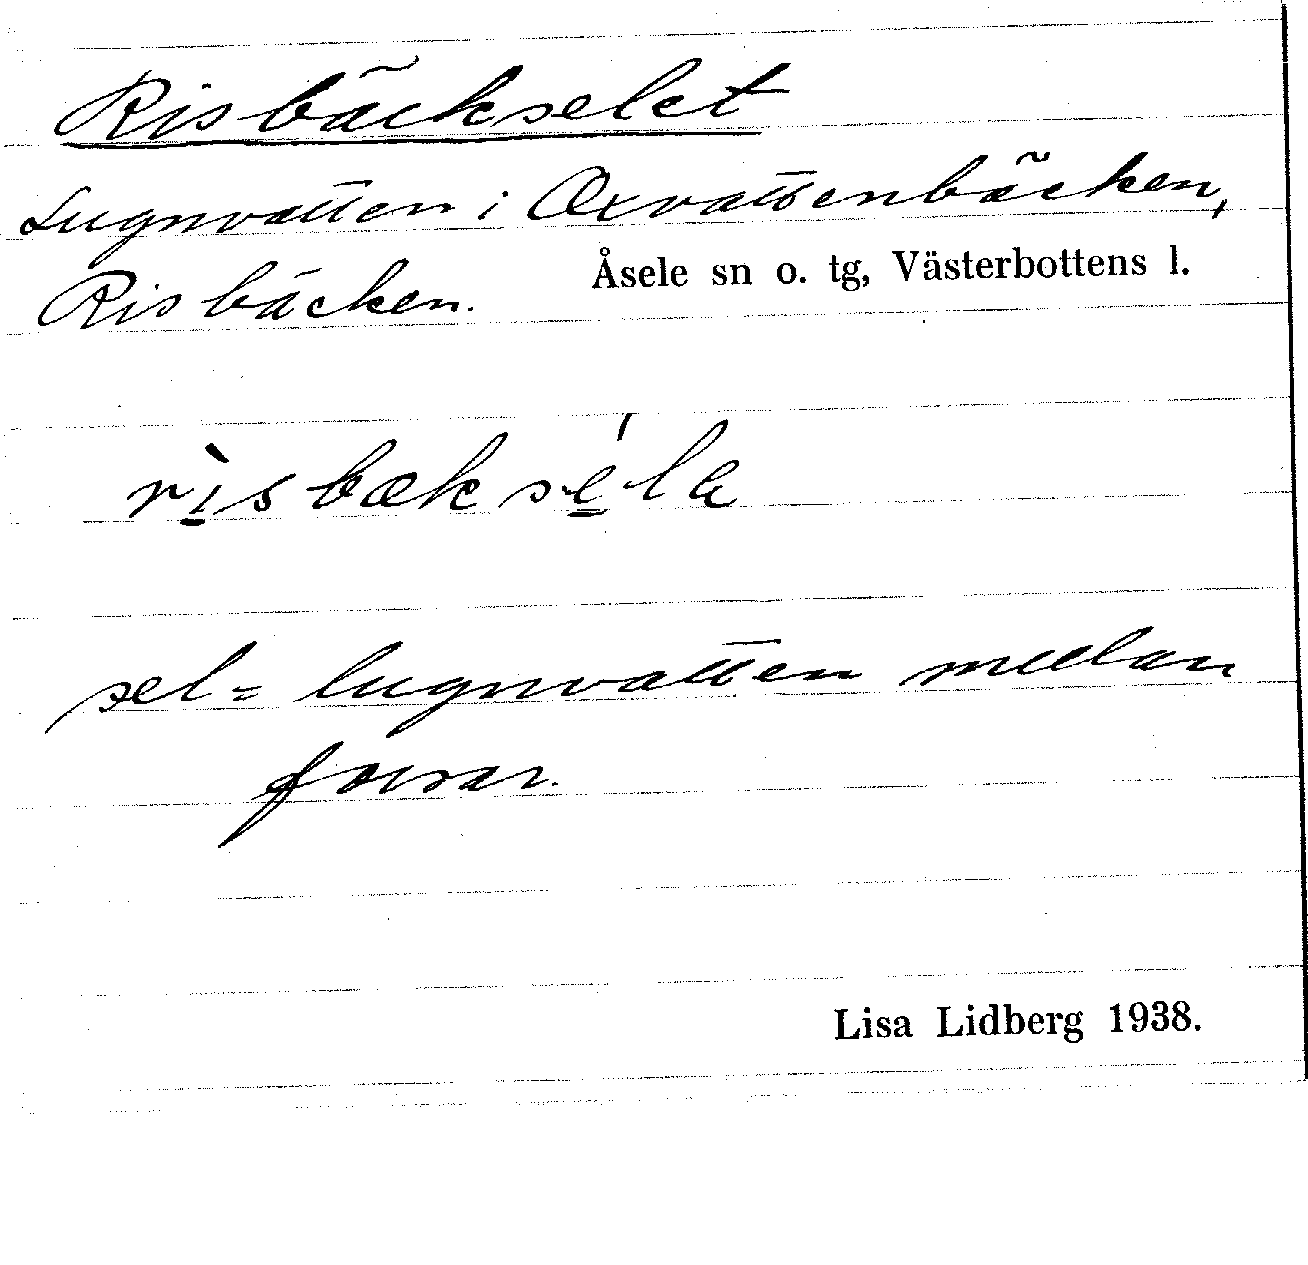 Risbäckselet
Lugnvatten i Oxvattenbäcken,
Risbäcken.
Åsele sn o. tg, Västerbottens l.
rìsbækséla
sel = lugnvatten mellan
forsar.
Lisa Lidberg 1938.